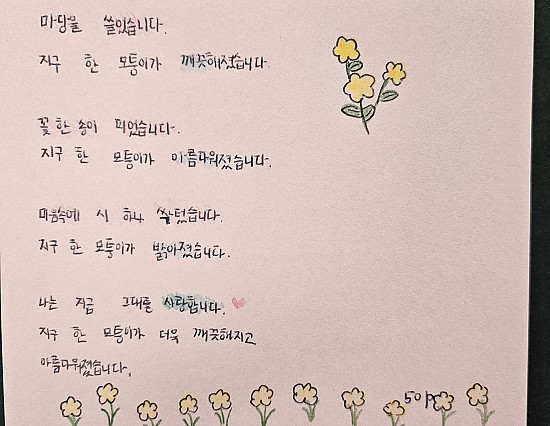 마당을 쓸었습니다.
지구 한 모퉁이가 깨끗해졌습니다.
꽃 한 송이 피었습니다.
지구 한 모퉁이가 아름다워졌습니다.
마음속에 시 하나 싹텄습니다.
지구 한 모퉁이가 밝아졌습니다.
나는 지금 그대를 사랑합니다.
지구 한 모퉁이가 더욱 깨끗해지고
아름다워졌습니다.